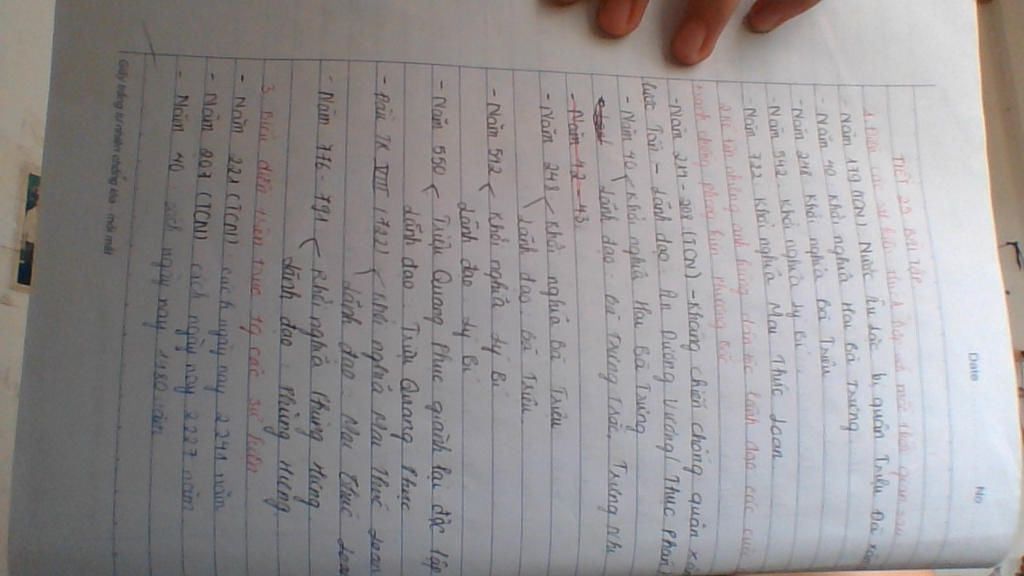 Date
No
TIẾT 29 BÀI TẬP
- Năm 179 (TCN) Nước Âu Lạc bị quân Triệu Đà xâm
- Năm 40 khởi nghĩa Hai Bà Trưng
- Năm 248 khởi nghĩa Bà Triệu
- Năm 542 khởi nghĩa Lý Bí
- Năm 722 khởi nghĩa Mai Thúc Loan
anh hùng dân tộc lãnh đạo các cuộc
phong kiến phương Bắc
- Năm 214 - 208 (TCN) - kháng chiến chống quân xâm
lược Tần - Lãnh đạo An Dương Vương / Thục Phán
- Năm 40 < khởi nghĩa Hai Bà Trưng
Lãnh đạo Trưng Trắc, Trưng Nhị
- Năm 42 - 43
- Năm 248 < khởi nghĩa Bà Triệu
Lãnh đạo Bà Triệu
- Năm 542 < khởi nghĩa Lý Bí
Lãnh đạo Lý Bí
- Năm 550 < Triệu Quang Phục giành lại độc lập
Lãnh đạo Triệu Quang Phục
- Đầu TK VIII (722) < khởi nghĩa Mai Thúc Loan
Lãnh đạo - Mai Thúc Loan
- Năm 776 - 791 < khởi nghĩa Phùng Hưng
Lãnh đạo - Phùng Hưng
3 Biểu diễn trên trục các sự kiện
- Năm 221 (TCN) cách ngày nay 2241 năm
- Năm 207 (TCN) cách ngày nay 2227 năm
- Năm 40 cách ngày nay 1980 năm
Giấy trắng tự nhiên chống lóa - mỏi mắt